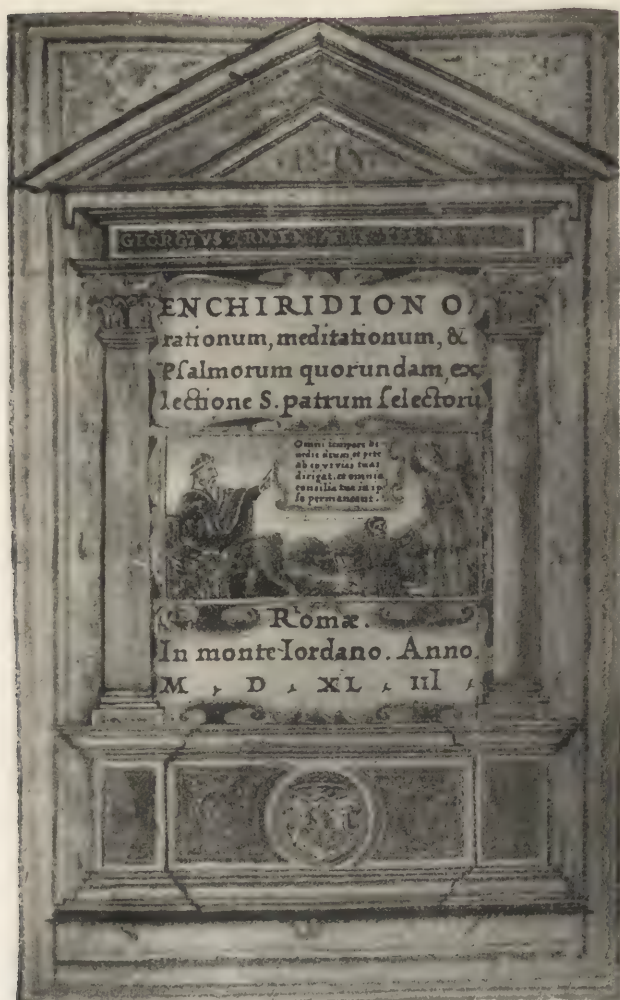 GEORGIVS
ENCHIRIDION O,
rationum, meditationum, &
Psalmorum quorundam, ex
lectione S. patrum selectorū
Omni tempore be-
nedic deum, et pete
ab eo vt vias tuas
dirigat, et omnia
consilia tua in ip-
so permaneant.
Romæ.
In monte Iordano. Anno.
M , D , XL , III ,